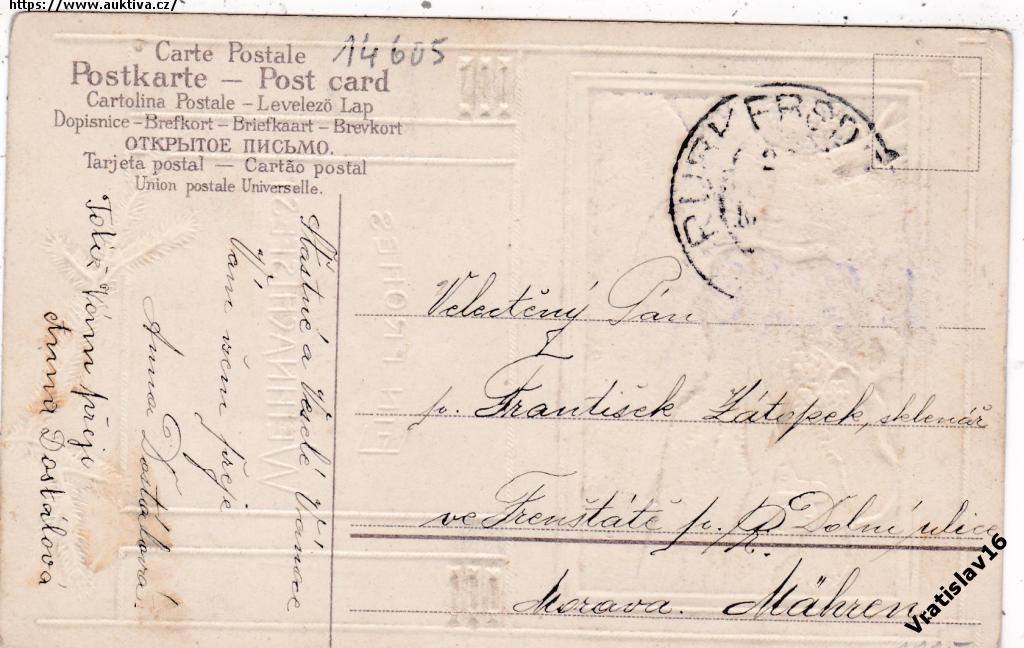 https://www.auktiva.cz/
Carte Postale
14605
Postkarte — Post card
Cartolina Postale – Levelező Lap
Dopisnice – Brefkort – Briefkaart – Brevkort
ОТКРЫТОЕ ПИСЬМО.
Tarjeta postal — Cartão postal
Union postale Universelle.
Šťastné a Veselé Vánoce
Vám všem přeje
Anna Dostálová.
Totéž Vám přeji
Anna Dostálová
Velectěný Pán
p. František Zátopek, sklenář
ve Frenštátě p. R. Dolní ulice
Morava. Mähren.
Vratislav16